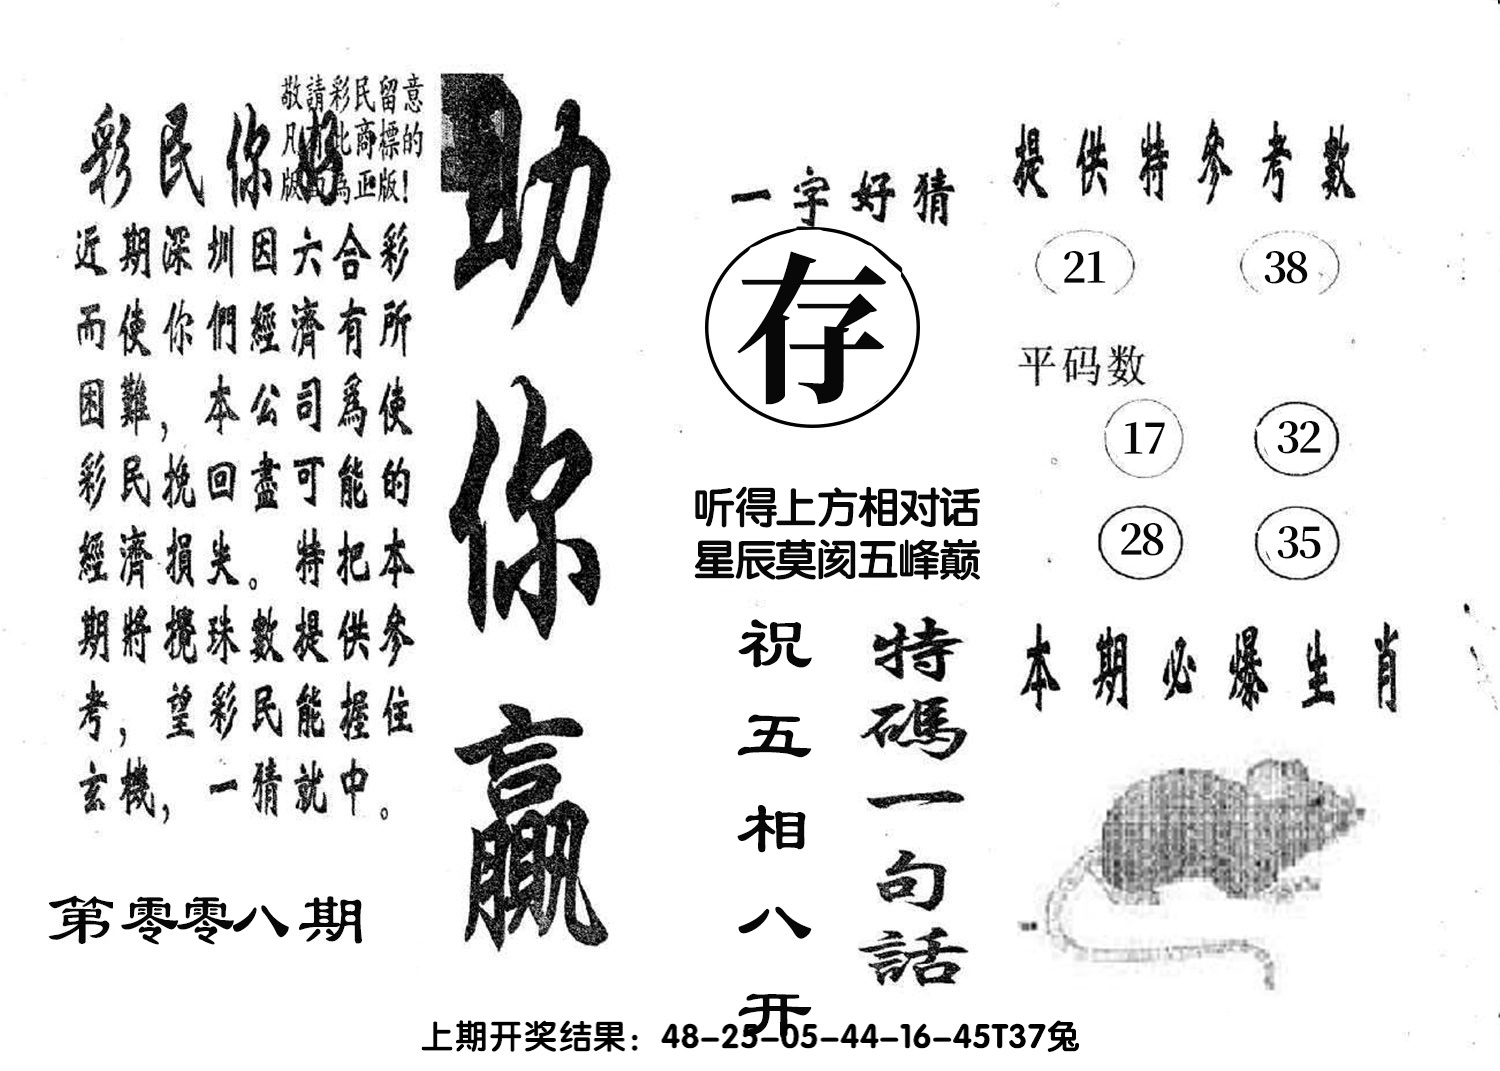 敬請彩民留意
凡有此商標的
版面為正版!
彩民你好
近期深圳因六合彩
而使你們經濟有所
困難，本公司爲使
彩民挽回盡可能的
經濟損失。特把本
期將攪珠數提供參
考，望彩民能握住
玄機，一猜就中。
第零零八期
助你贏
一字好猜
存
听得上方相对话
星辰莫阂五峰巅
祝五相八开
特碼一句話
提供特參考數
21 38
平码数
17 32
28 35
本期必爆生肖
上期开奖结果：48-25-05-44-16-45T37兔